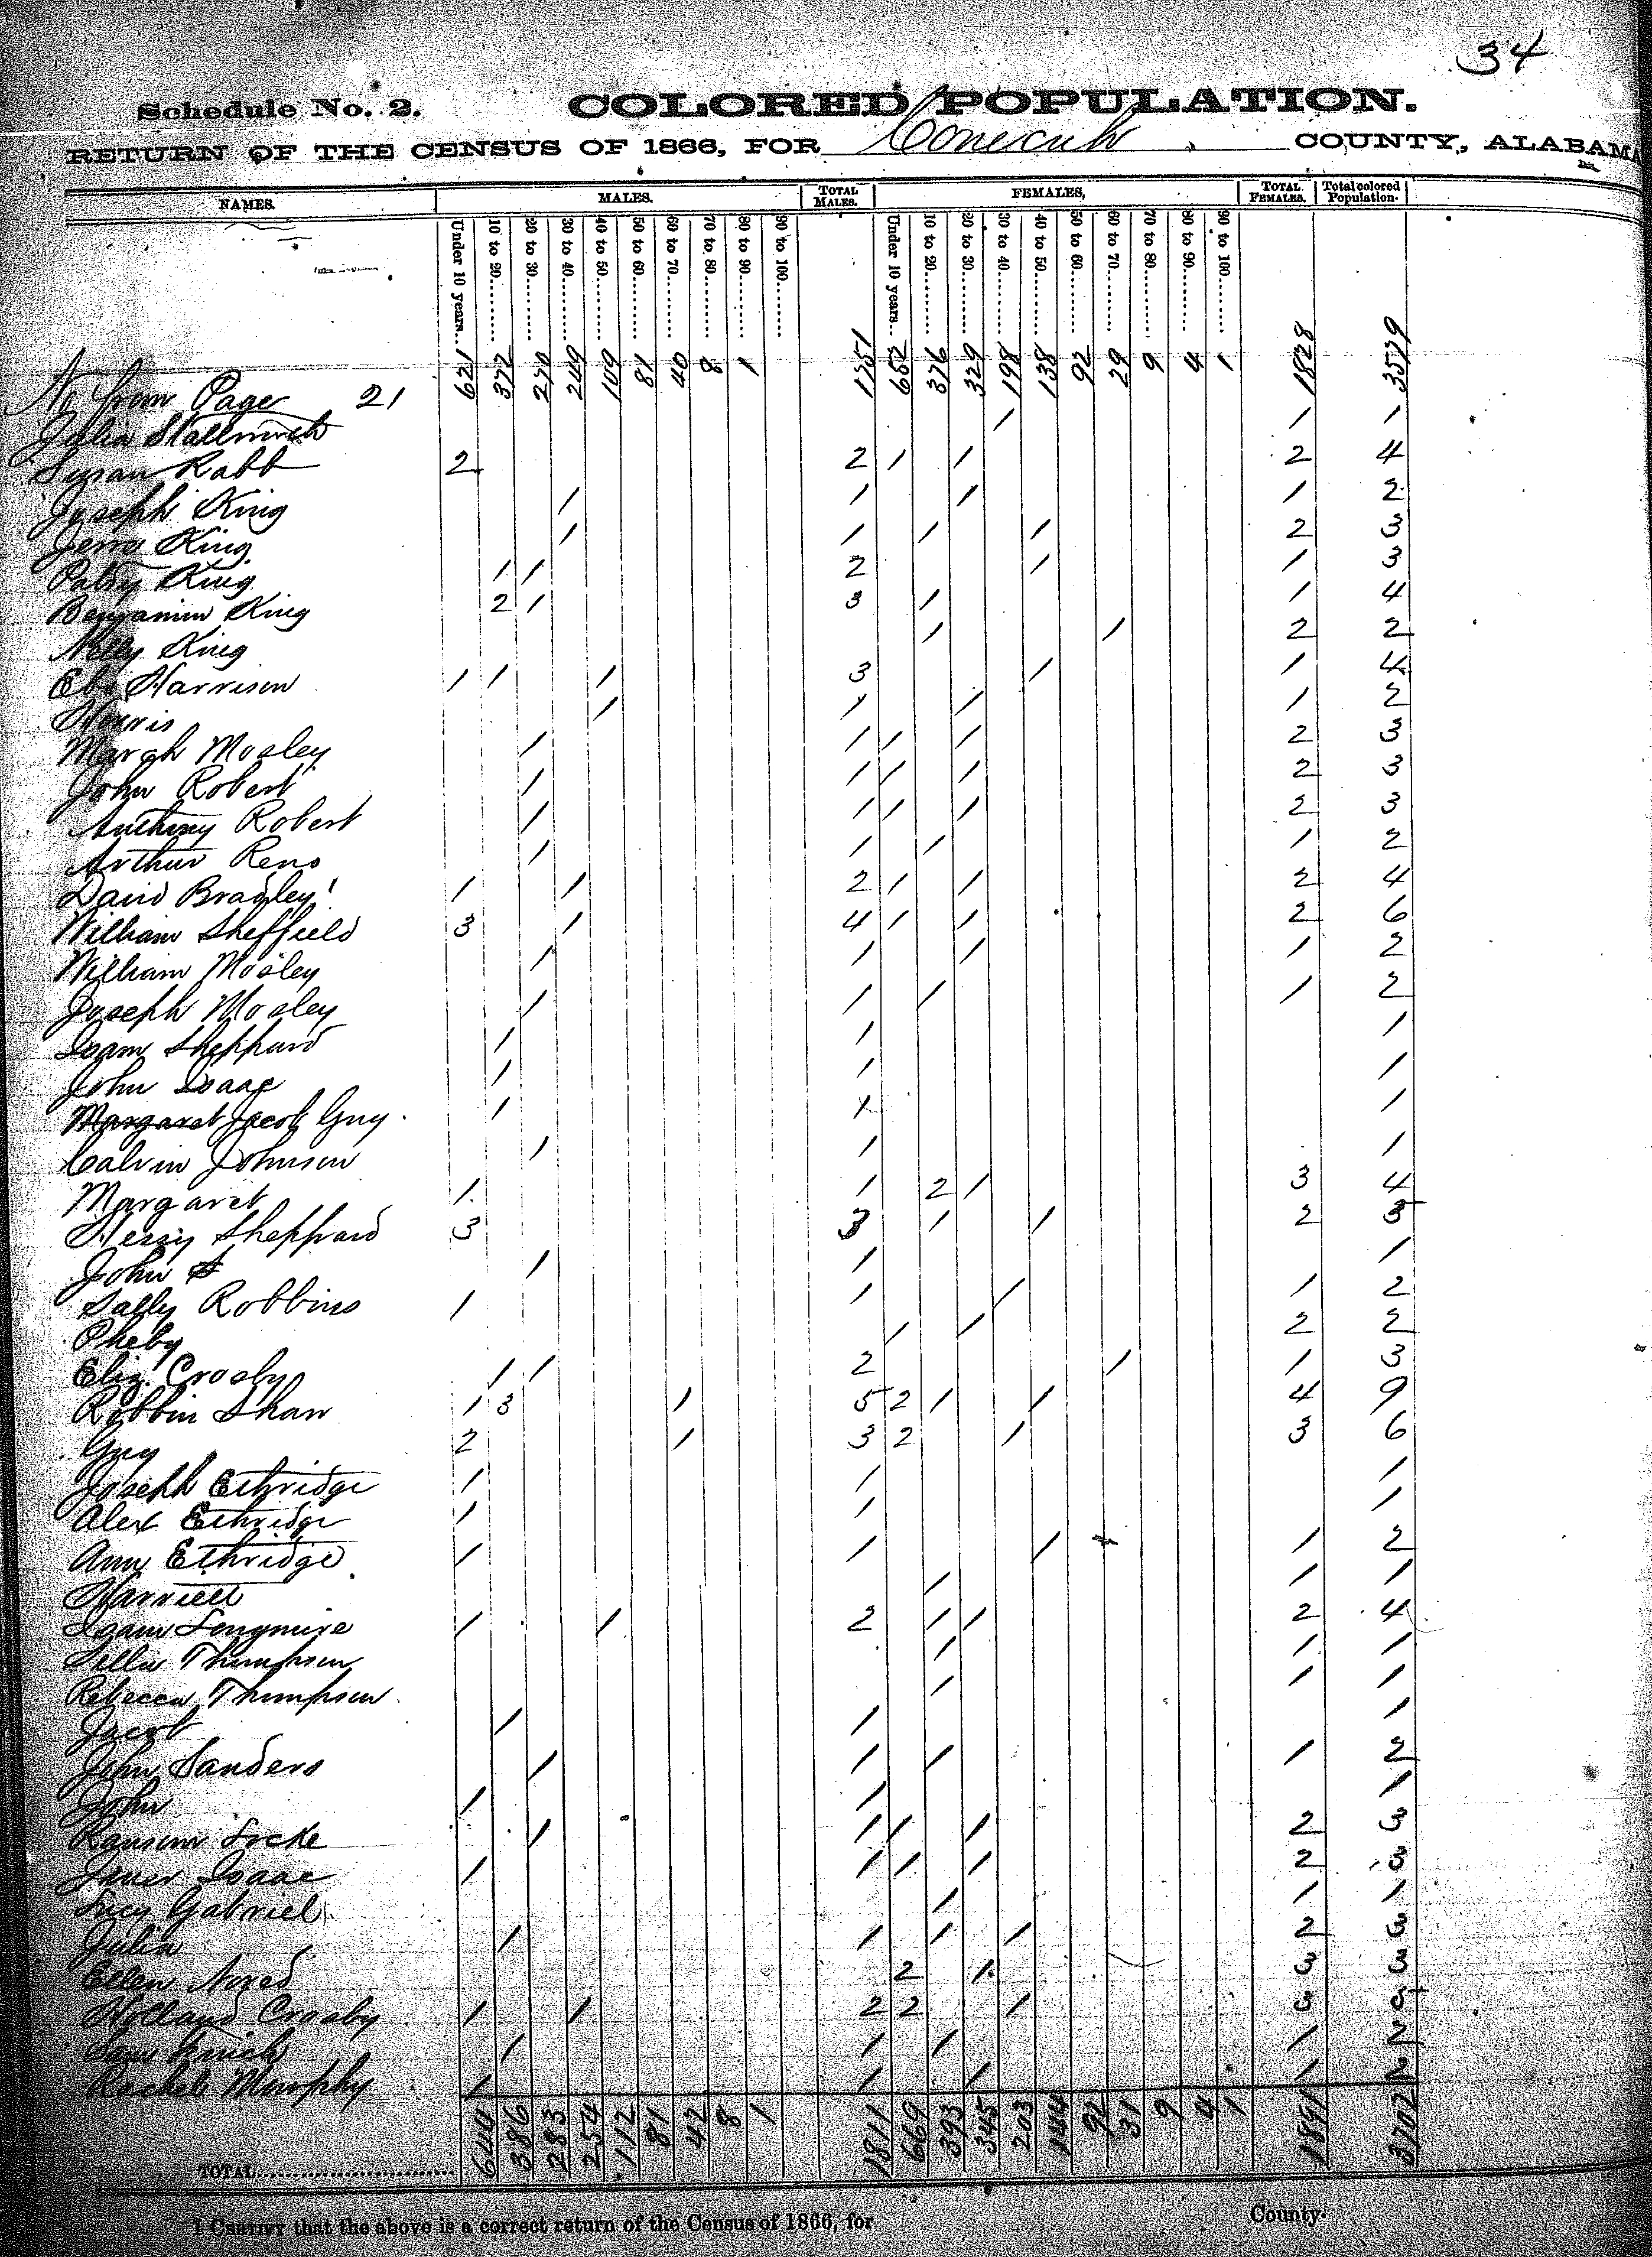 34
Schedule No. 2. COLORED POPULATION.
RETURN OF THE CENSUS OF 1866, FOR Conecuh COUNTY, ALABAMA
NAMES. MALES. TOTAL MALES. FEMALES, TOTAL FEMALES. Total colored Population.
Under 10 years... 10 to 20 20 to 30 30 to 40 40 to 50 50 to 60 60 to 70 70 to 80 80 to 90 90 to 100 Under 10 years.. 10 to 20 20 to 30 30 to 40 40 to 50 50 to 60 60 to 70 70 to 80 80 to 90 90 to 100
from Page 21 621 372 270 249 109 81 40 8 1 1751 652 376 329 198 138 92 29 9 4 1 1828 3579
Julia 1 1 1
Susan Rabb 2 2 1 1 2 4
Joseph King 1 1 1 1 2
King 1 1 1 1 2 3
Patsy King 1 1 2 1 1 3
Benjamin King 2 1 3 1 1 4
Nelly King 1 1 2 2
Harrison 1 1 1 3 1 1 4
1 1 1 1 2
Mosley 1 1 1 1 2 3
John Robert 1 1 1 1 2 3
Anthony Robert 1 1 1 1 2 3
Arthur Reno 1 1 1 1 2
David Bradley 1 1 2 1 1 2 4
William Sheffield 3 1 4 1 1 2 6
William Mosley 1 1 1 1 2
Joseph Mosley 1 1 1 1 2
Isam Sheppard 1 1 1
John Isaac 1 1 1
Margaret Jacob Guy 1 1 1
Calvin Johnson 1 1 1
Margaret 1 1 2 1 3 4
Sheppard 3 3 1 1 2 5
John S 1 1 1
Sally Robbins 1 1 1 1 2
Pheby 1 1 2 2
Eliz. Crosby 1 1 2 1 1 3
Robbin Shaw 1 3 1 5 2 1 1 4 9
Guy 2 1 3 2 1 3 6
Joseph Ethridge 1 1 1
Alex Ethridge 1 1 1
Ann Ethridge 1 1 1 1 2
Harriett 1 1 1
Isam Longmire 1 1 2 1 1 2 4
Thompson 1 1 1
Rebecca Thompson 1 1 1
Jacob 1 1 1
John Sanders 1 1 1 1 2
John 1 1 1
Ransom Locke 1 1 1 1 2 3
Isaac 1 1 1 1 2 3
Lucy Gabriel 1 1 1
Julia 1 1 1 1 2 3
Ellen 2 1 3 3
Holland Crosby 1 1 2 2 1 3 5
Sam 1 1 1 1 2
Rachel Murphy 1 1 1 1 2
TOTAL 644 386 283 254 112 81 42 8 1 1811 669 393 345 203 144 92 31 9 4 1 1891 3702
I CERTIFY that the above is a correct return of the Census of 1866, for County.